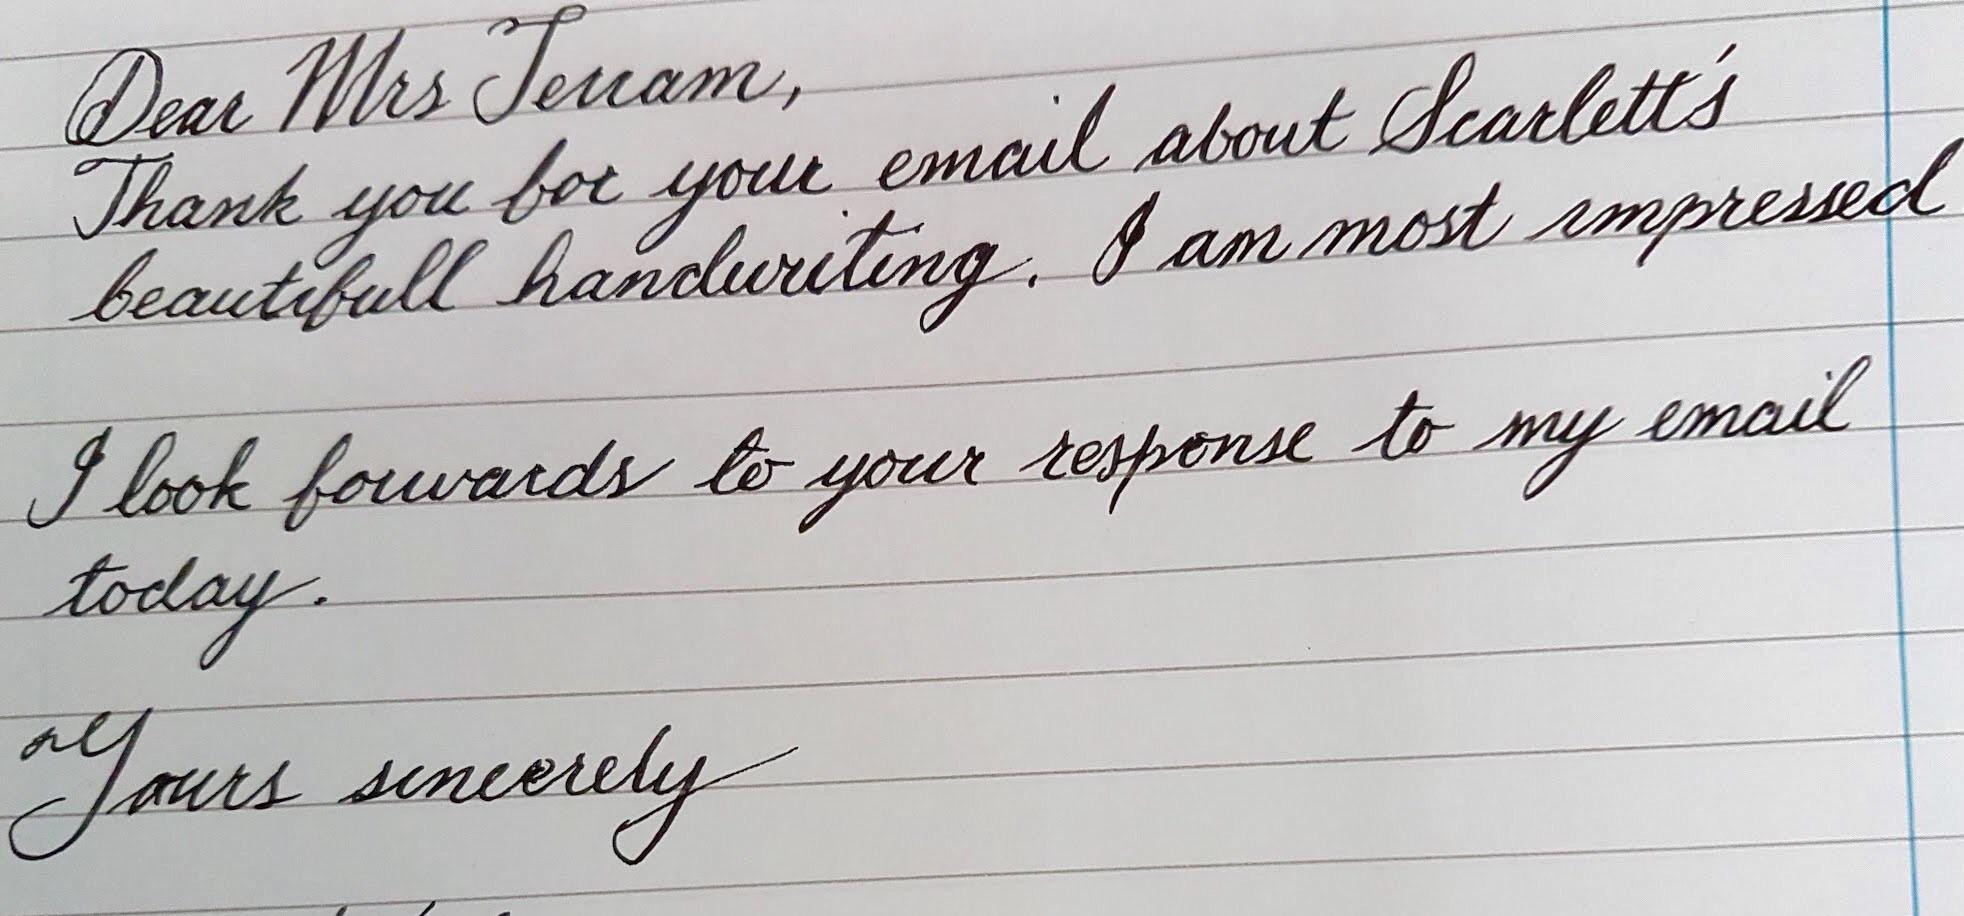 Dear Mrs Terram,
Thank you for your email about Scarlett's
beautifull handwriting. I am most impressed
I look forwards to your response to my email
today.
Yours sincerely